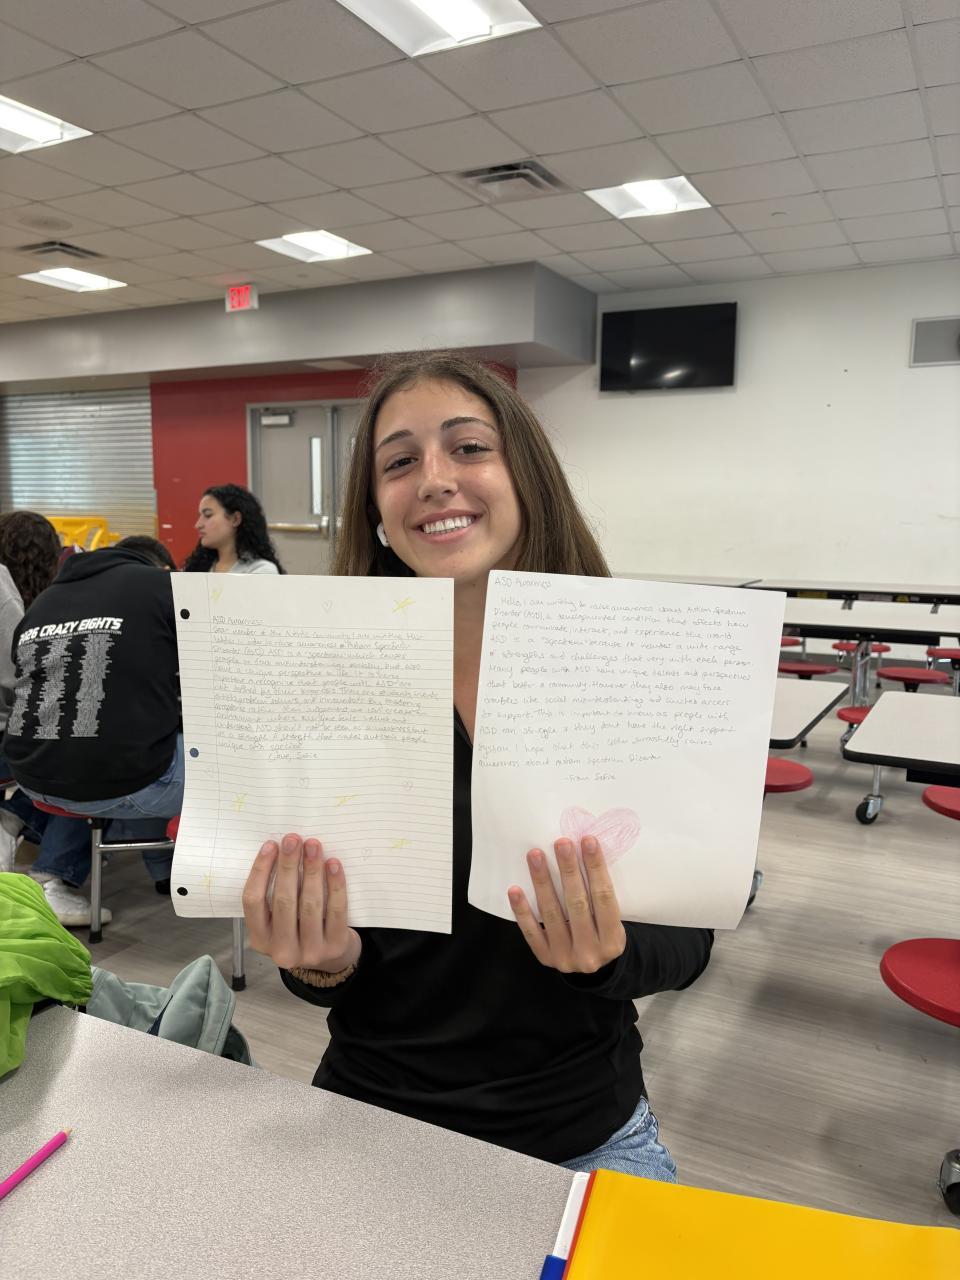 EXIT
2026 CRAZY EIGHTS
ASD Awareness:
Dear member of the Autistic Community, I am writing this
letter to increase awareness of Autism Spectrum
Disorder (ASD). ASD is a "spectrum" which causes
people to face misunderstandings socially, but also
have a unique perspective to life. It is very
important to recognize that people with ASD are
not defined by their struggles. They are students, friends
problem solvers, and innovators. By
acceptance rather than judgement we can create an
environment where everyone feels valued and
understood. ASD should not be seen as a weakness but
as a strength. A strength that makes autistic people
unique and special.
Love, Sofia
ASD Awareness
Hello, I am writing to raise awareness about Autism Spectrum
Disorder (ASD), a developmental condition that affects how
people communicate, interact, and experience the world.
ASD is a "spectrum" because it varies a wide range
of strengths and challenges that vary with each person.
Many people with ASD have unique talents and perspectives
that benefit a community. However they also may face
complex like social misunderstanding and limited access
to support. This is important to know as people with
ASD can struggle if they dont have the right support
system. I hope that this letter successfully raises
awareness about Autism Spectrum Disorder
-From Sofia